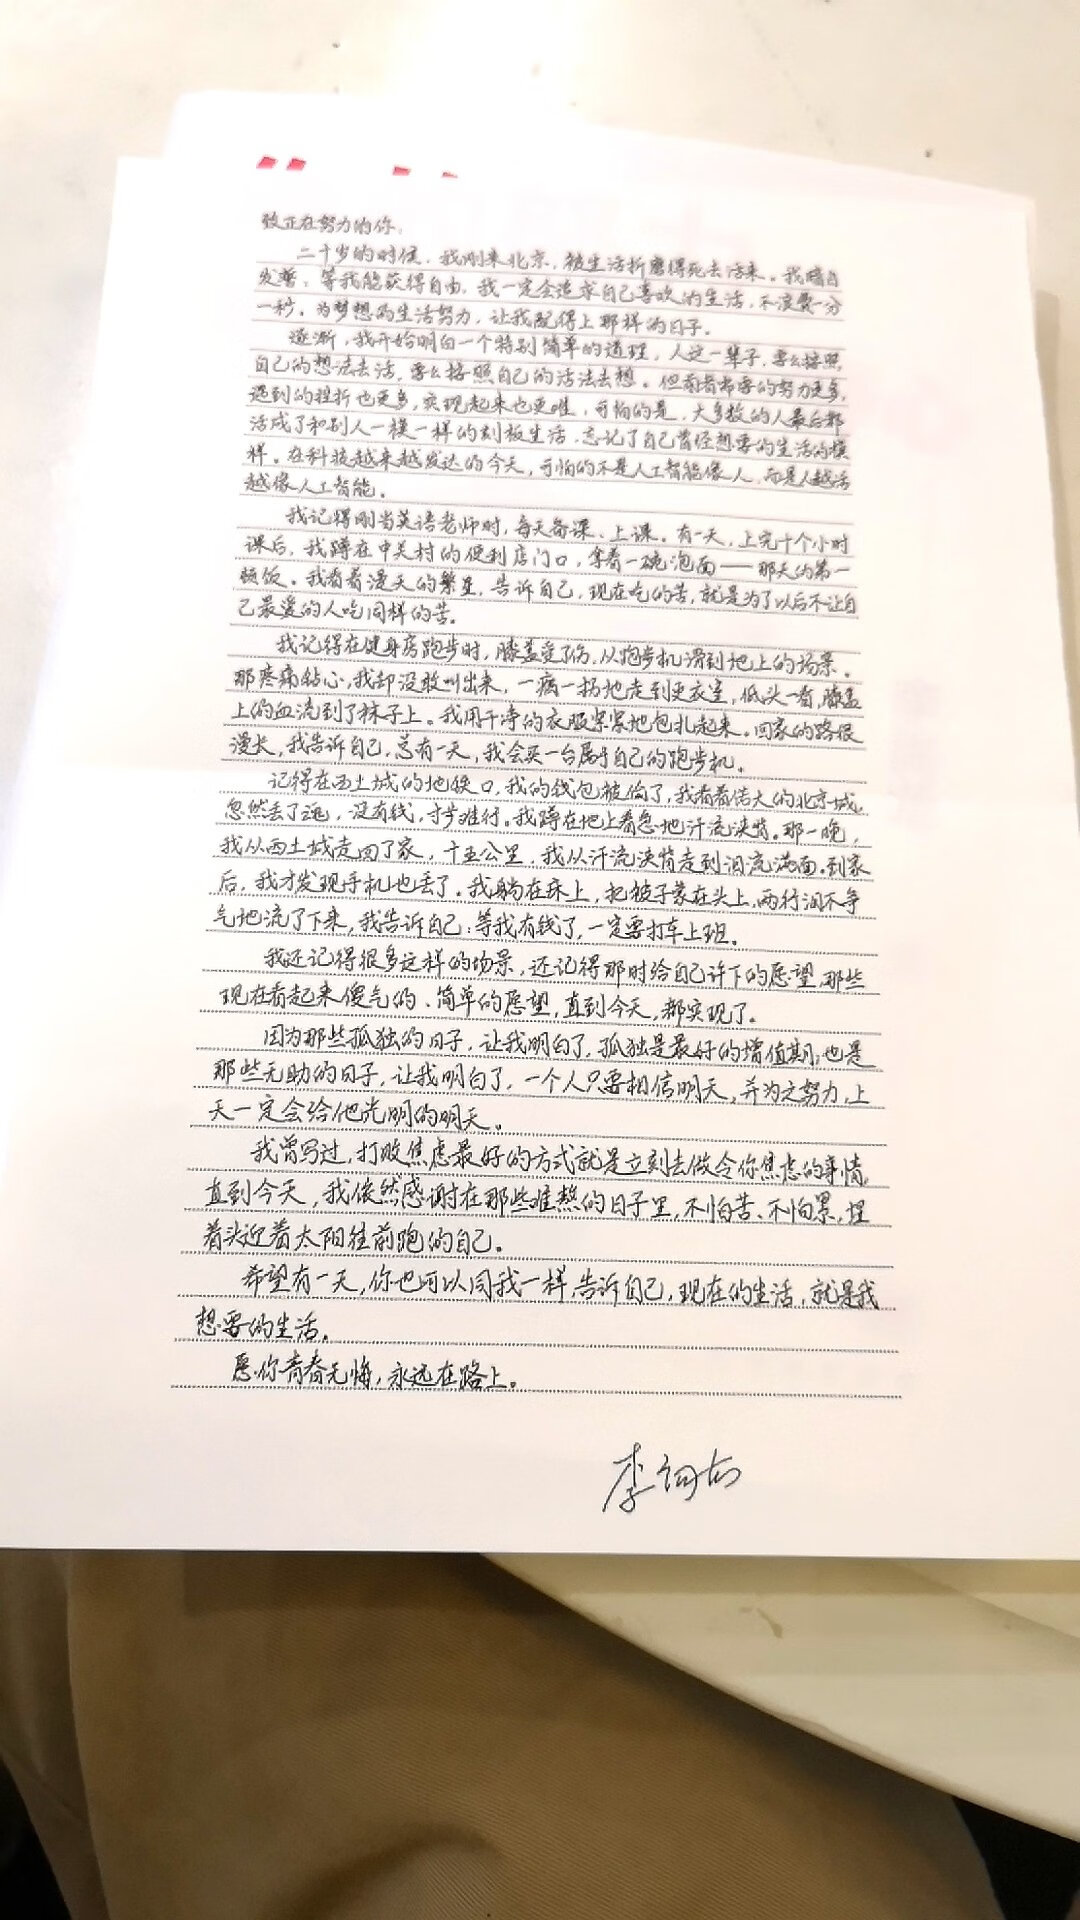 致正在努力的你,
二十岁的时候,我刚来北京,被生活折磨得死去活来。我暗自
发誓:等我能获得自由,我一定会追求自己喜欢的生活,不浪费一分
一秒,为梦想的生活努力,让我配得上那样的日子。
逐渐,我开始明白一个特别简单的道理,人这一辈子,要么按照
自己的想法去活,要么按照自己的活法去想。但前者需要的努力更多,
遇到的挫折也更多,实现起来也更难,可怕的是,大多数的人最后都
活成了和别人一模一样的刻板生活,忘记了自己曾经想要的生活的模
样。在科技越来越发达的今天,可怕的不是人工智能像人,而是人越活
越像人工智能。
我记得刚当英语老师时,每天备课、上课。有一天,上完十个小时
课后,我蹲在中关村的便利店门口,拿着一碗泡面——那天的第一
顿饭。我看着漫天的繁星,告诉自己,现在吃的苦,就是为了以后不让自
己最爱的人吃同样的苦。
我记得在健身房跑步时,膝盖受了伤,从跑步机滑到地上的场景。
那疼痛钻心,我却没敢叫出来,一瘸一拐地走到更衣室,低头一看,膝盖
上的血流到了袜子上。我用干净的衣服紧紧地包扎起来。回家的路很
漫长,我告诉自己,总有一天,我会买一台属于自己的跑步机。
记得在西土城的地铁口,我的钱包被偷了,我看着偌大的北京城,
忽然丢了魂,没有钱,寸步难行。我蹲在地上着急地汗流浃背。那一晚,
我从西土城走回了家,十五公里,我从汗流浃背走到泪流满面。到家
后,我才发现手机也丢了。我躺在床上,把被子蒙在头上,两行泪不争
气地流了下来,我告诉自己:等我有钱了,一定要打车上班。
我还记得很多这样的场景,还记得那时给自己许下的愿望,那些
现在看起来傻气的、简单的愿望,直到今天,都实现了。
因为那些孤独的日子,让我明白了,孤独是最好的增值期;也是
那些无助的日子,让我明白了,一个人只要相信明天,并为之努力,上
天一定会给他光明的明天。
我曾写过,打败焦虑最好的方式就是立刻去做令你焦虑的事情,
直到今天,我依然感谢在那些难熬的日子里,不怕苦、不怕累,埋
着头迎着太阳往前跑的自己。
希望有一天,你也可以同我一样,告诉自己,现在的生活,就是我
想要的生活。
愿你青春无悔,永远在路上。
李尚龙